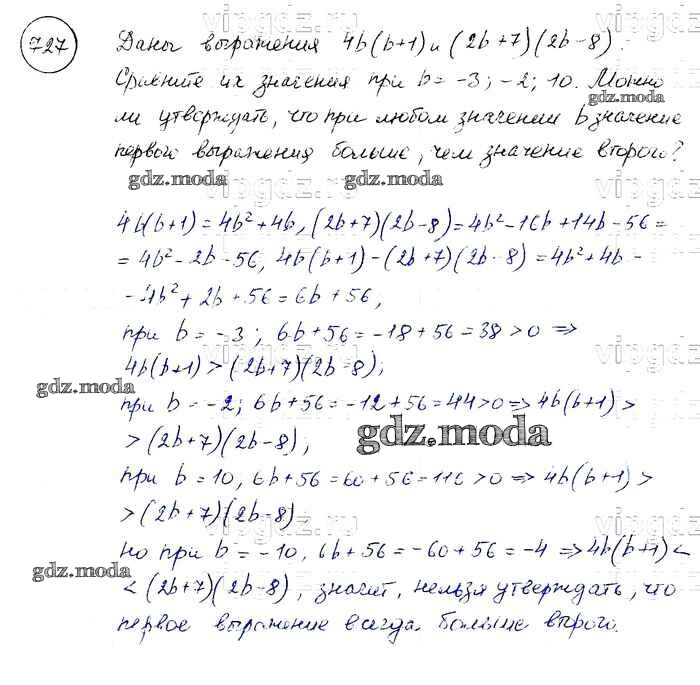 727 Даны выражения 4b(b+1) и (2b+7)(2b-8).
Сравните их значения при b = -3; -2; 10. Можно
gdz.moda
ли утверждать, что при любом значении b значение
первого выражения больше, чем значение второго?
gdz.moda gdz.moda
4b(b+1) = 4b² + 4b, (2b+7)(2b-8) = 4b² - 16b + 14b - 56 =
= 4b² - 2b - 56, 4b(b+1) - (2b+7)(2b-8) = 4b² + 4b -
- 4b² + 2b + 56 = 6b + 56,
при b = -3; 6b + 56 = -18 + 56 = 38 > 0 =>
vipgdz.ru
4b(b+1) > (2b+7)(2b-8);
gdz.moda
при b = -2; 6b + 56 = -12 + 56 = 44 > 0 => 4b(b+1) >
> (2b+7)(2b-8);
gdz.moda
при b = 10, 6b + 56 = 60 + 56 = 116 > 0 => 4b(b+1) >
> (2b+7)(2b-8)
vipgdz.ru
но при b = -10, 6b + 56 = -60 + 56 = -4 => 4b(b+1) <
gdz.moda
< (2b+7)(2b-8), значит, нельзя утверждать, что
первое выражение всегда больше второго.